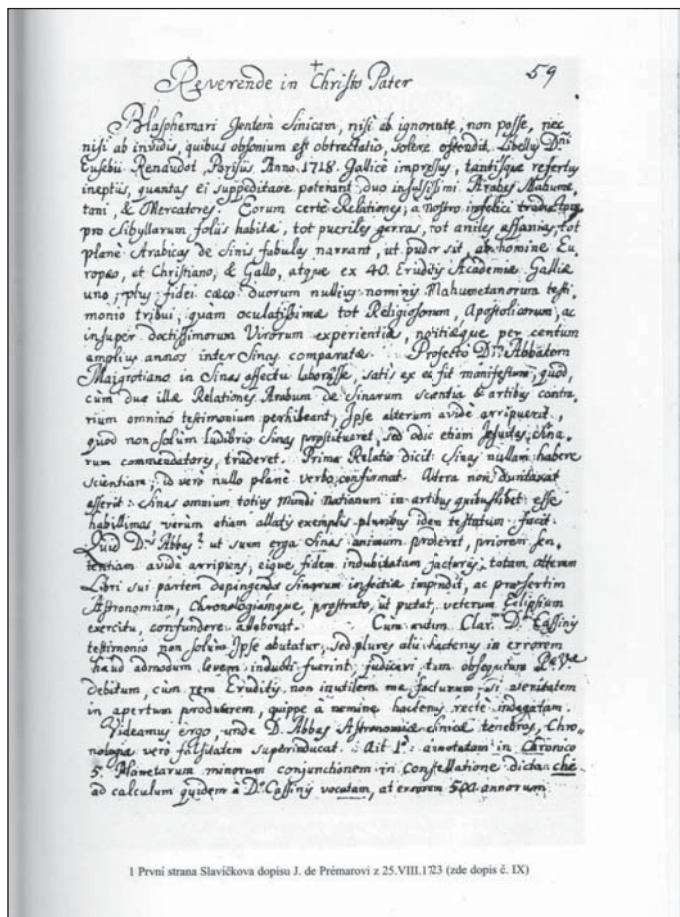 59
Reverende in Christo Pater
Blasphemari Gentem Sinicam, nisi ab ignorante, non posse, nec
nisi ab invidis, quibus obsonium est obtrectatio, solere ostendit Libellus Dni
Eusebii Renaudot, Parisiis Anno 1718. Gallicè impressus, tantisque refertus
ineptiis, quantas ei suppeditare poterant duo insulsissimi Arabes Mahume-
tani, & Mercatores. Eorum certè Relationes, a nostro infelici traductore
pro Sibyllarum foliis habitæ, tot pueriles gerras, tot aniles affanias, tot
planè Arabicas de Sinis fabulas narrant, ut pudor sit, ab homine Eu-
ropæo, et Christiano, & Gallo, atque ex 40. Eruditis Academiæ Galliæ
uno, plus fidei cæco duorum nullius nominis Mahumetanorum testi-
monio tribui, quàm oculatissimæ tot Religiosorum, Apostolicorum, ac
insuper doctissimorum Virorum experientiæ, notitiæque per centum
amplius annos inter Sinas comparatæ. Profectò Dn. Abbatem
Maigrotiano in Sinas affectu laborâsse, satis ex eo fit manifestum, quod,
cùm duæ illæ Relationes Arabum de Sinarum scientia & artibus contra-
rium omnino testimonium perhibeant, Ipse alterum avidè arripuerit,
quod non solùm ludibrio Sinas prostitueret, sed odio etiam Jesuitas, Sina-
rum commendatores, traderet. Prima Relatio dicit: Sinas nullam habere
scientiam; id verò nullo planè verbo confirmat. Altera non duntaxat
asserit: Sinas omnium totius Mundi Nationum in artibus quibuslibet esse
habillimas, verùm etiam allatis exemplis pluribus idem testatum facit.
Quid D. Abbas? ut suum erga Sinas animum proderet, priorem sen-
tentiam avidè arripiens, eique fidem indubitatam facturus, totam alteram
Libri sui partem depingendæ Sinarum inscitiæ impendit, ac præsertim
Astronomiam, Chronologiamque, prostrato, ut putat, veterum Eclipsium
exercitu, confundere allaborat. Cùm autem Clar. D. Cassiny
testimonio non solùm Ipse abutatur, sed plures alii hactenus in errorem
haud admodum levem inducti fuerint; judicavi, tum obsequium
debitum, cùm rem Eruditis non inutilem me facturum si veritatem
in apertum producerem, quippe à nemine hactenus rectè indagatam.
Videamus ergo, unde D. Abbas Astronomiæ Sinicæ tenebras, Chro-
nologiæ verò falsitatem superinducat. Ait 1º: annotatam in Chronico
5. Planetarum minorum conjunctionem in Constellatione dicta che
ad calculum quidem à D. Cassiny vocatam, at errorem 500 annorum
1 První strana Slavíčkova dopisu J. de Prémarovi z 25.VIII.1723 (zde dopis č. IX)